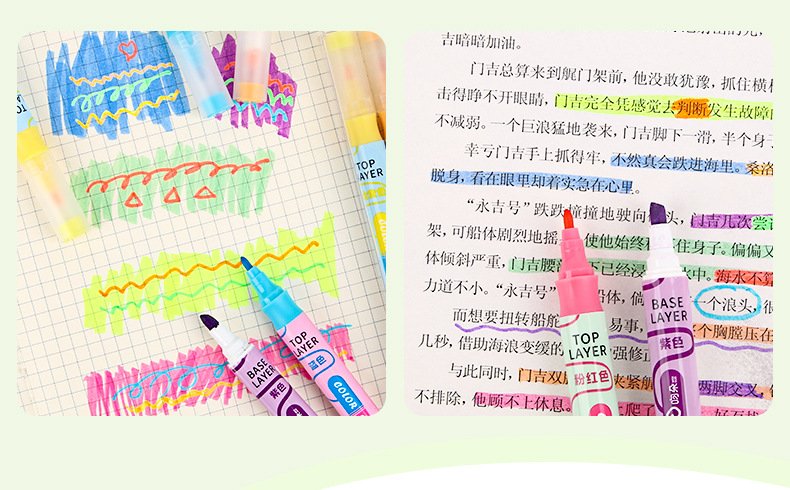 TOP
LAYER
BASE
LAYER
紫色
TOP
LAYER
蓝色
COLOR
吉暗暗加油。
门吉总算来到艉门架前，他没敢犹豫，抓住横
击得睁不开眼睛，门吉完全凭感觉去判断发生故障
不减弱。一个巨浪猛地袭来，门吉脚下一滑，半个身
幸亏门吉手上抓得牢，不然真会跌进海里。桑洛
脱身，看在眼里却着实急在心里。
“永吉号”跌跌撞撞地驶向 头，门吉几次尝
架，可船体剧烈地摇 使他始终 住身子。偏偏又
体倾斜严重，门吉腰 下已经浸 水中。海水不算
力道不小。“永吉号” 船体，倘 一个浪头，
而想要扭转船舵 易事， 个胸膛压在
几秒，借助海浪变缓的 强修正
与此同时，门吉双 夹紧 两脚交叉，
不排除，他顾不上休息。 上爬了
BASE
LAYER
紫色
TOP
LAYER
粉红色